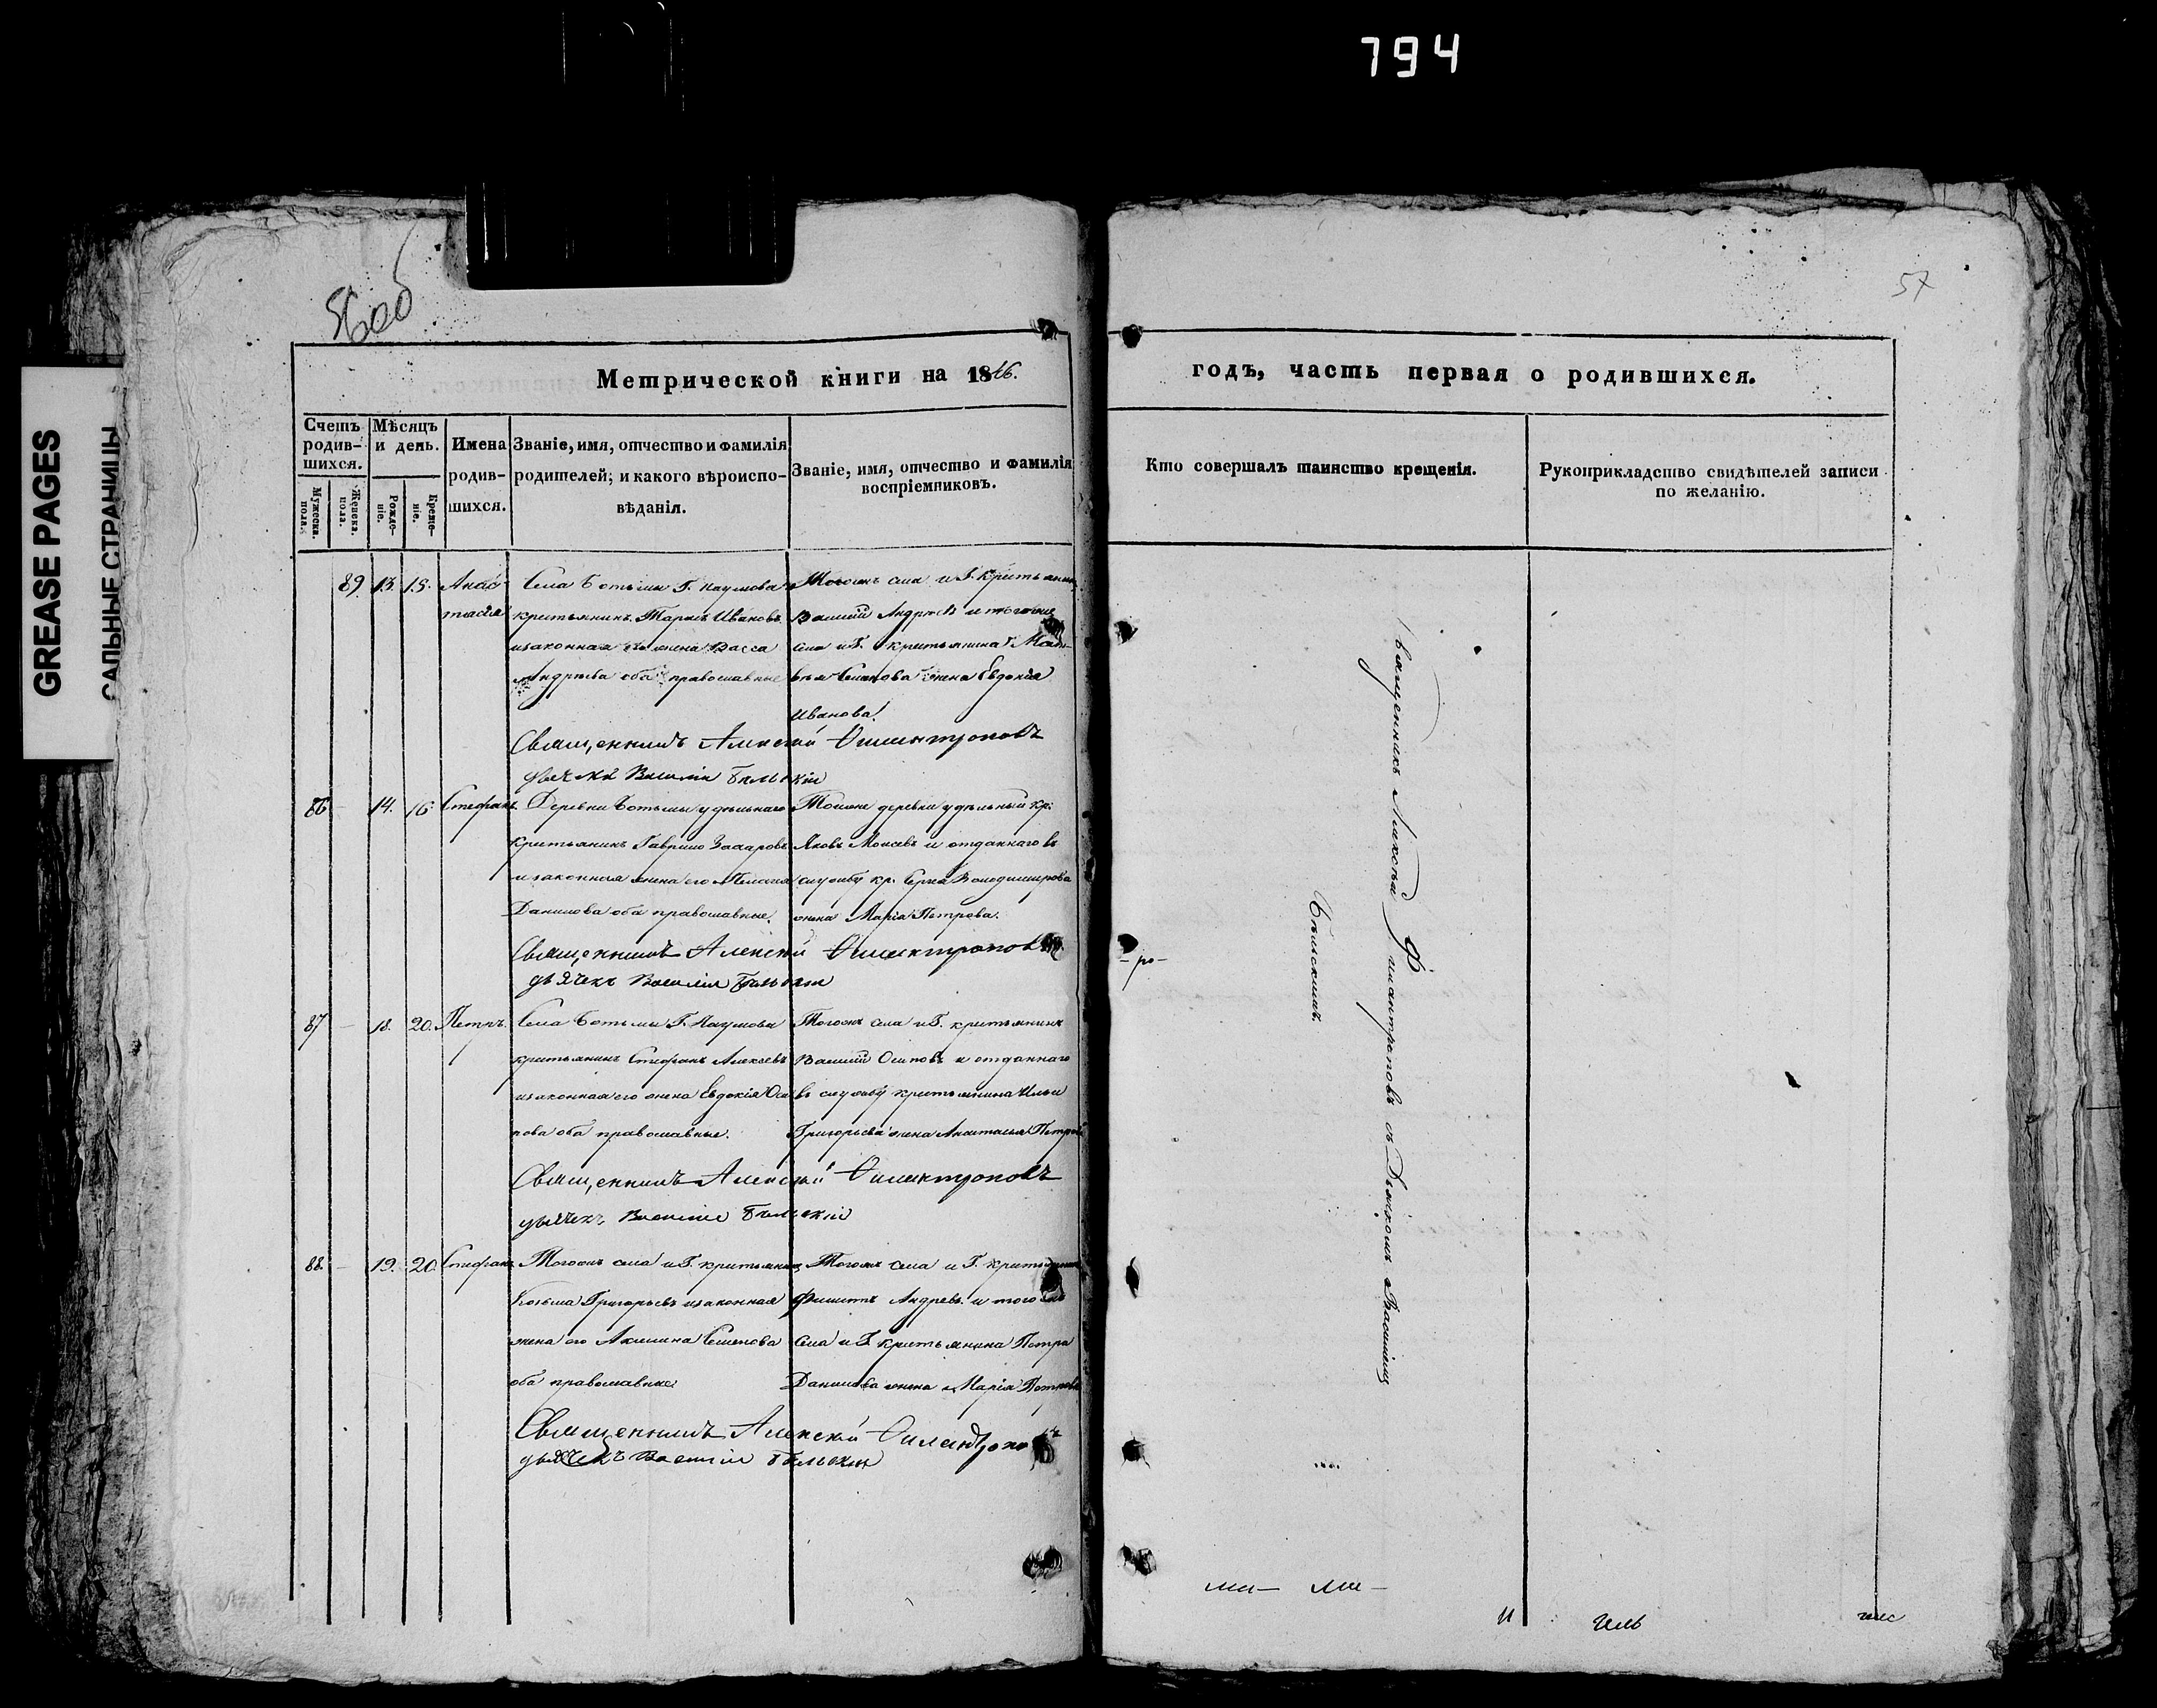 794
GREASE PAGES
САЛЬНЫЕ СТРАНИЦЫ
57
Метрической книги на 1846.
годъ, часть первая о родившихся.
Счетъ родив-шихся.
Мужеска. пола.
Женска. пола.
Мѣсяцъ и день.
Рожде-ніе.
Креще-ніе.
Имена родив-шихся.
Званіе, имя, отчество и фамилія
родителей; и какого вѣроиспо-
вѣданія.
Званіе, имя, отчество и фамилія
воспріемниковъ.
Кто совершалъ таинство крещенія.
Рукоприкладство свидѣтелей записи
по желанію.
89. 13. 15. Анас-
тасія
Села Ботьмы Г. Наумова
крестьянинъ Тарасъ Ивановъ
изаконная его жена Васса
Андреева оба православные
Тогожъ села и Г. крестьянинъ
Василій Андреевъ и тогоже
села и Г. крестьянина Мат-
вѣя Семенова жена Евдокія
Иванова.
Священникъ Алексѣй Филантроповъ
дьячекъ Василій Бѣльскій
86 – 14. 16 Стефанъ.
Деревни Ботьмы удѣльнаго
крестьянинъ Гаврило Захаровъ
изаконная жена его Пелагія
Данилова оба православные.
Тойже деревни удѣльный кр:
Яковъ Моисевъ и отданнаго въ
службу кр. Сергея Володимирова
жена Марія Петрова.
Священникъ Алексѣй Филантроповъ
дьячекъ Василій Бѣльскій
87 – 18. 20. Петръ.
Села Ботьмы Г. Наумова
крестьянинъ Стефанъ Алексѣевъ
изаконная его жена Евдокія Оси-
пова оба православные.
Тогожъ села и Г. крестьянинъ
Василій Осиповъ и отданнаго
въ службу крестьянина Ильи
Григорьева жена Анастасья Петрова
Священникъ Алексѣй Филантроповъ
дьячекъ Василій Бѣльскій
88. – 19. 20 Стефанъ
Тогожъ села и Г. крестьянинъ
Козьма Григорьевъ изаконная
жена его Акилина Семенова
оба православные
Тогожъ села и Г. крестьянинъ
Филиппъ Андреевъ и тогожъ
села и Г. крестьянина Петра
Данилова жена Марія Петрова
Священникъ Алексѣй Филантроповъ
дьячекъ Василій Бѣльскій
Священникъ Алексѣй Филантроповъ съ Дьячкомъ Василіемъ
Бѣльскимъ.